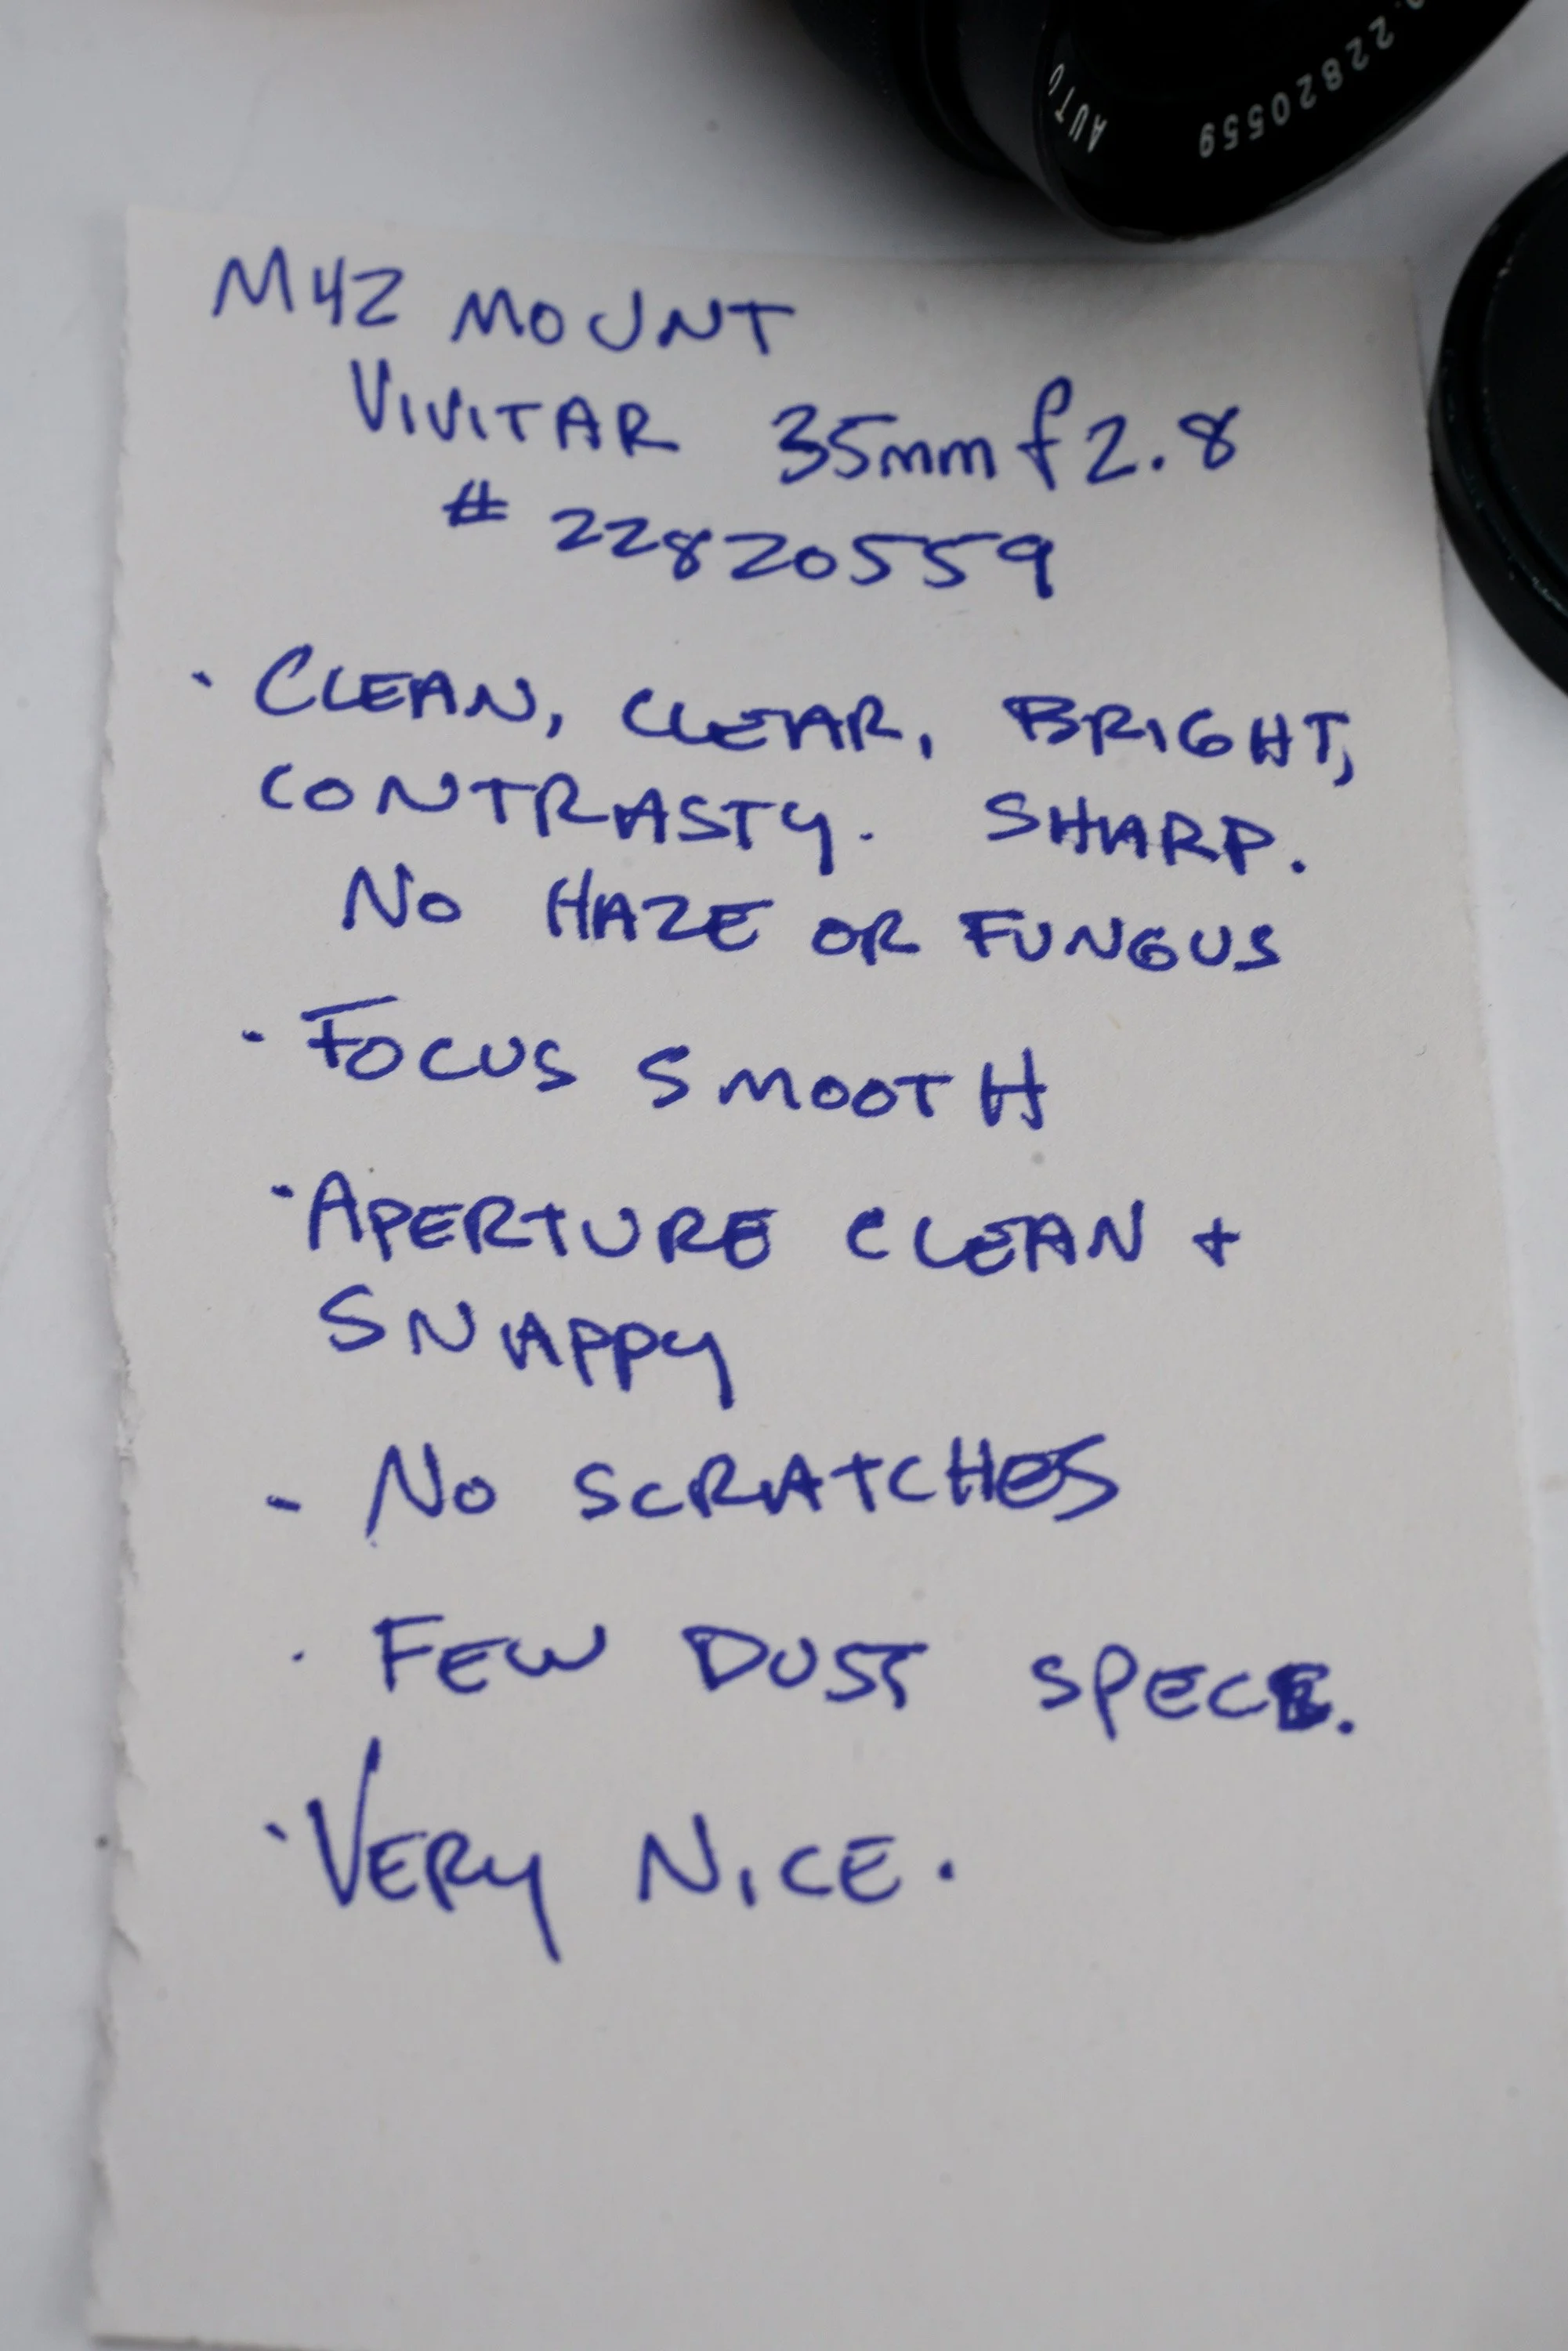 AUTO
.22820559
M42 MOUNT
VIVITAR 35mm f2.8
# 22820559
· CLEAN, CLEAR, BRIGHT,
CONTRASTY. SHARP.
NO HAZE OR FUNGUS
· FOCUS SMOOTH
· APERTURE CLEAN +
SNAPPY
- NO SCRATCHES
· FEW DUST
· VERY NICE.